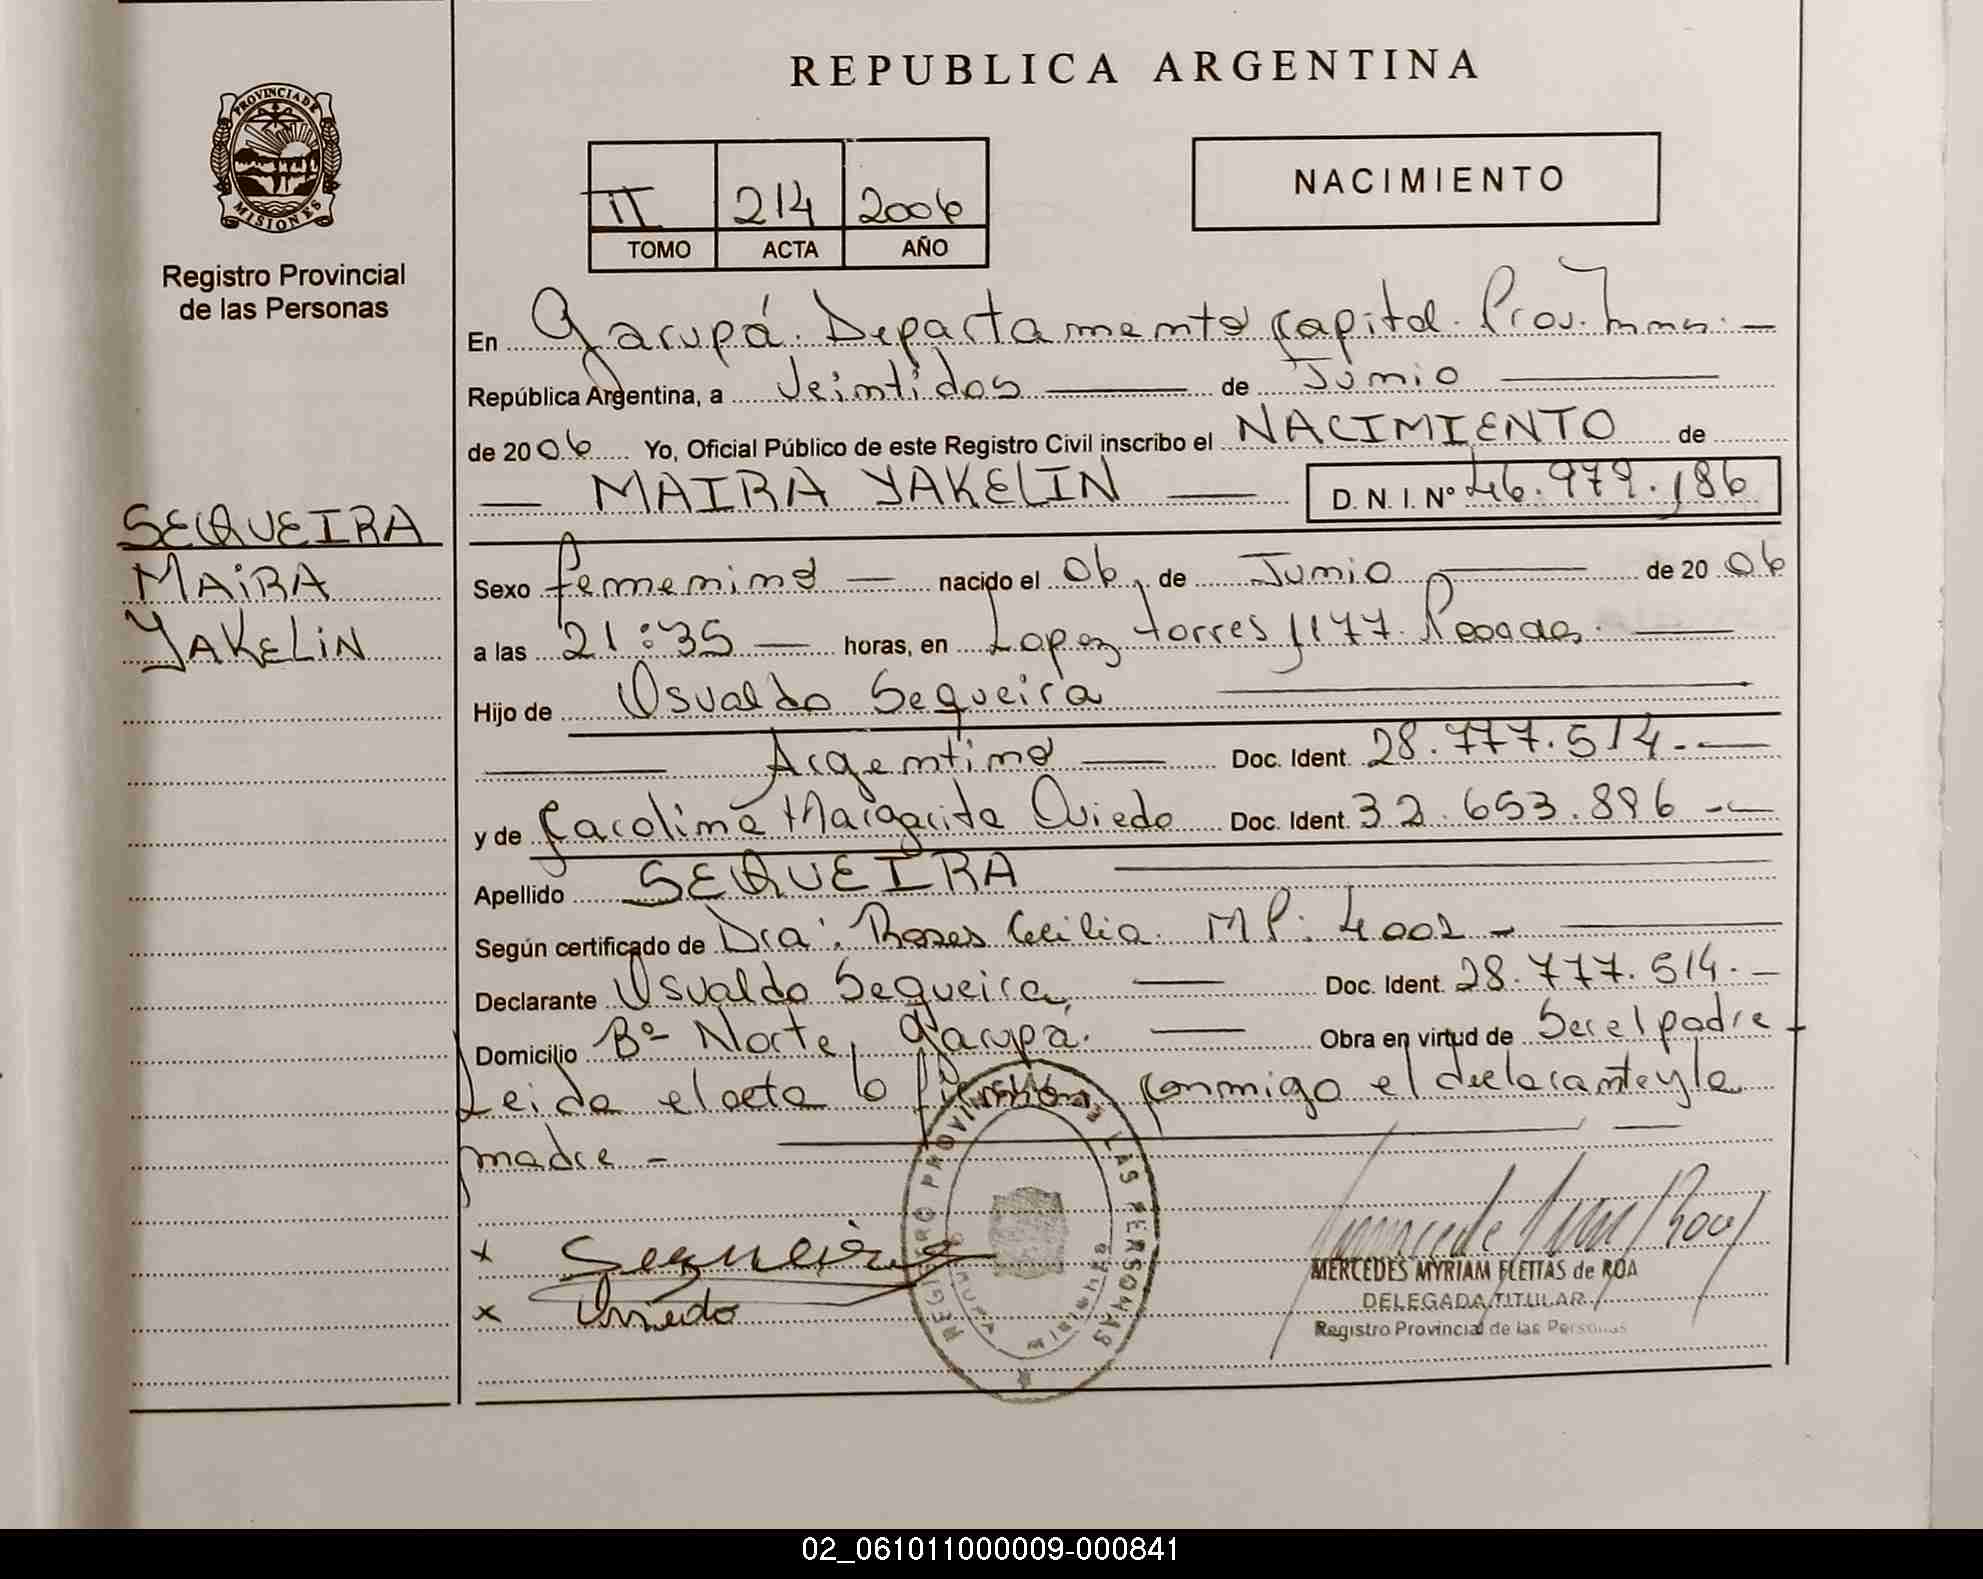 REPUBLICA ARGENTINA
PROVINCIA DE
MISIONES
Registro Provincial
de las Personas
II 214 2006
TOMO ACTA AÑO
NACIMIENTO
En Garupá. Departamento Capital. Prov. Mnes. —
República Argentina, a Veintidos — de Junio —
de 2006 Yo, Oficial Público de este Registro Civil inscribo el NACIMIENTO de
— MAIRA YAKELIN — D. N. I. Nº 46.979.186
SEQUEIRA
MAIRA
YAKELIN
Sexo femenino — nacido el 06 de Junio — de 2006
a las 21:35 — horas, en Lopez torres 1177. Posadas —
Hijo de Osvaldo Sequeira —
— Argentino — Doc. Ident. 28.777.514.—
y de Carolina Margarita Oviedo Doc. Ident. 32.653.896 -—
Apellido SEQUEIRA —
Según certificado de Dra. Cecilia. MP: 4002 - —
Declarante Osvaldo Sequeira — Doc. Ident. 28.777.514.—
Domicilio Bº Norte, Garupá. — Obra en virtud de Ser el padre
Leida el acta la firman conmigo el declarante y la
madre -
x Sequeira
x Oviedo
REGISTRO PROVINCIAL DE LAS PERSONAS
MERCEDES MYRIAM FLEITAS de ROA
DELEGADA TITULAR
Registro Provincial de las Personas
02_061011000009-000841